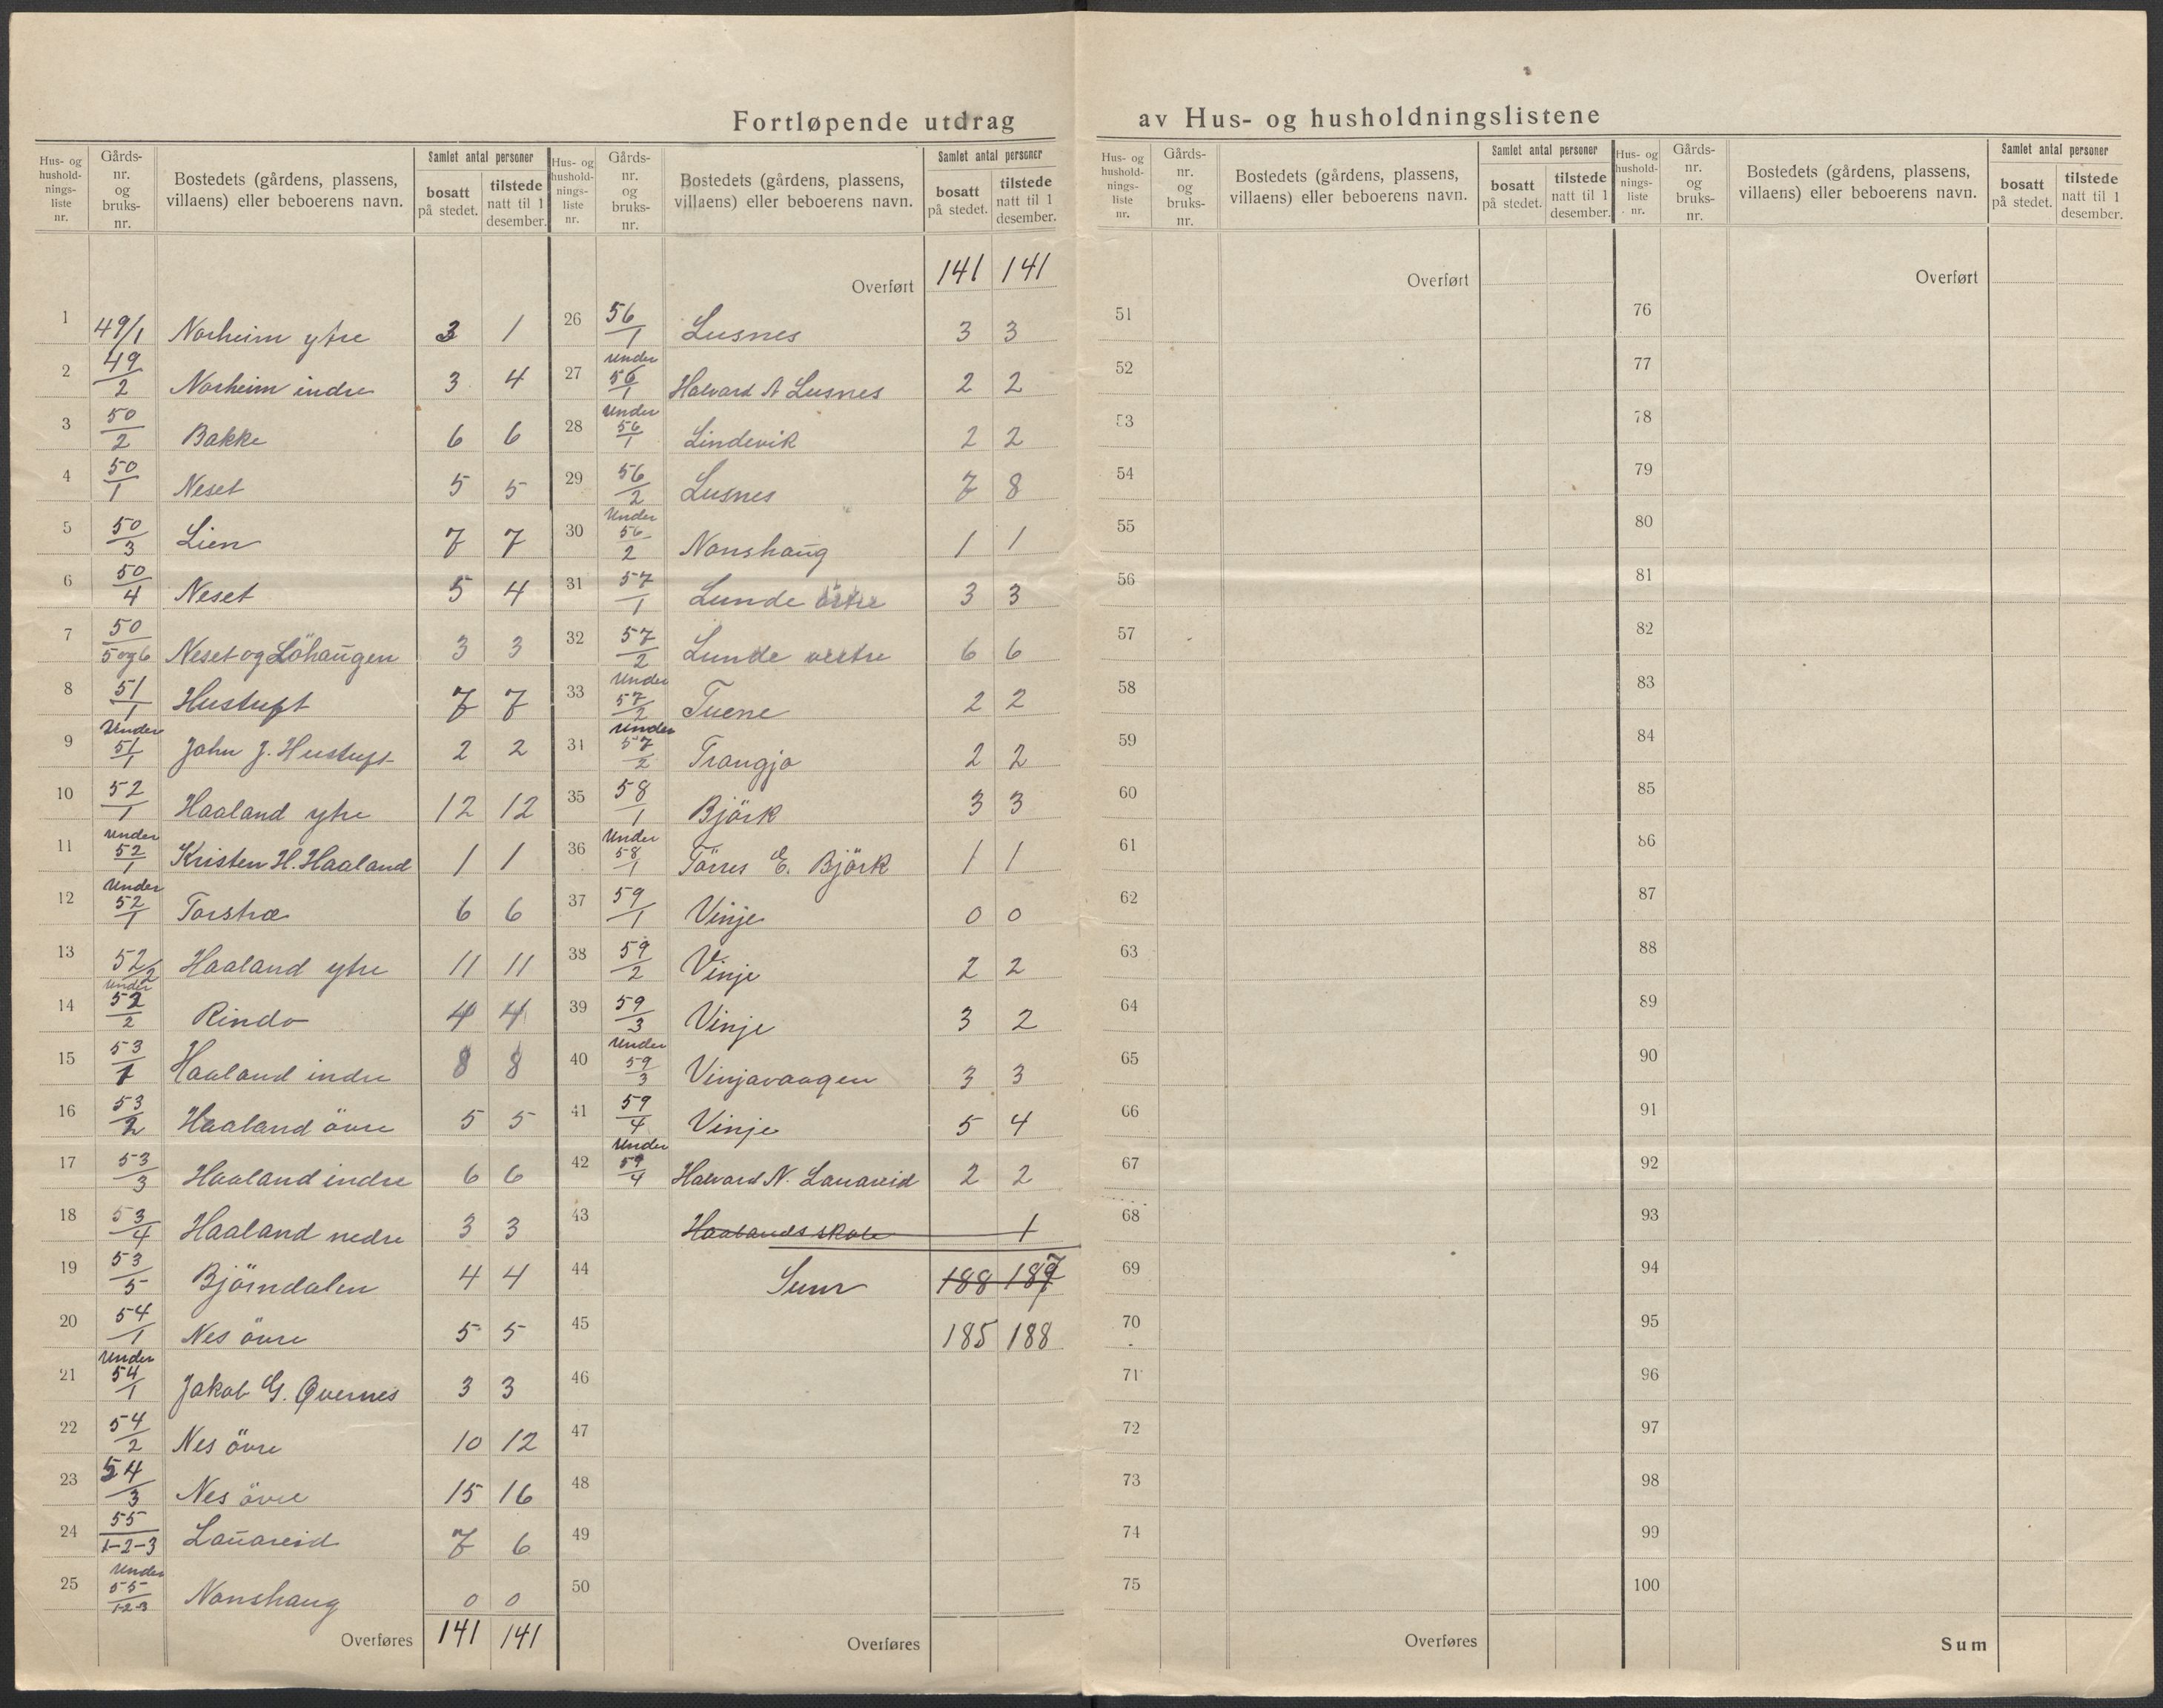 Fortløpende utdrag av Hus- og husholdningslistene
Hus- og hushold-nings-liste nr. | Gårds-nr. og bruks-nr. | Bostedets (gårdens, plassens, villaens) eller beboerens navn. | Samlet antal personer | bosatt på stedet. | tilstede natt til 1 desember.
1 49/1 Norheim ytre 3 1
2 49/2 Norheim indre 3 4
3 50/2 Bakke 6 6
4 50/1 Neset 5 5
5 50/3 Lien 7 7
6 50/4 Neset 5 4
7 50/5 og 6 Neset og Löhaugen 3 3
8 51/1 Hustuft 7 7
9 Under 51/1 John J. Hustuft 2 2
10 52/1 Haaland ytre 12 12
11 Under 52/1 Kristen H. Haaland 1 1
12 Under 52/1 Torstræ 6 6
13 52/2 Haaland ytre 11 11
14 Under 52/2 Rindo 4 4
15 53/1 Haaland indre 8 8
16 53/2 Haaland övre 5 5
17 53/3 Haaland indre 6 6
18 53/4 Haaland nedre 3 3
19 53/5 Björndalen 4 4
20 54/1 Nes övre 5 5
21 Under 54/1 Jakob G. Øvernes 3 3
22 54/2 Nes övre 10 12
23 54/3 Nes övre 15 16
24 55/1-2-3 Lauareid 7 6
25 Under 55/1-2-3 Nonshaug 0 0
Overføres 141 141
Hus- og hushold-nings-liste nr. | Gårds-nr. og bruks-nr. | Bostedets (gårdens, plassens, villaens) eller beboerens navn. | Samlet antal personer | bosatt på stedet. | tilstede natt til 1 desember.
Overført 141 141
26 56/1 Lusnes 3 3
27 Under 56/1 Halvard A Lusnes 2 2
28 Under 56/1 Lindevik 2 2
29 56/2 Lusnes 7 8
30 Under 56/2 Nonshaug 1 1
31 57/1 Lunde östre 3 3
32 57/2 Lunde vestre 6 6
33 Under 57/2 Tuene 2 2
34 Under 57/2 Trangjo 2 2
35 58/1 Björk 3 3
36 Under 58/1 Törres E. Björk 1 1
37 59/1 Vinje 0 0
38 59/2 Vinje 2 2
39 59/3 Vinje 3 2
40 Under 59/3 Vinjavaagen 3 3
41 59/4 Vinje 5 4
42 Under 59/4 Halvard N. Lauareid 2 2
43 Haalands skole 1
44 Sum 188 187
45 185 188
46
47
48
49
50
Overføres
Hus- og hushold-nings-liste nr. | Gårds-nr. og bruks-nr. | Bostedets (gårdens, plassens, villaens) eller beboerens navn. | Samlet antal personer | bosatt på stedet. | tilstede natt til 1 desember.
Overført
51
52
53
54
55
56
57
58
59
60
61
62
63
64
65
66
67
68
69
70
71
72
73
74
75
Overføres
Hus- og hushold-nings-liste nr. | Gårds-nr. og bruks-nr. | Bostedets (gårdens, plassens, villaens) eller beboerens navn. | Samlet antal personer | bosatt på stedet. | tilstede natt til 1 desember.
Overført
76
77
78
79
80
81
82
83
84
85
86
87
88
89
90
91
92
93
94
95
96
97
98
99
100
Sum